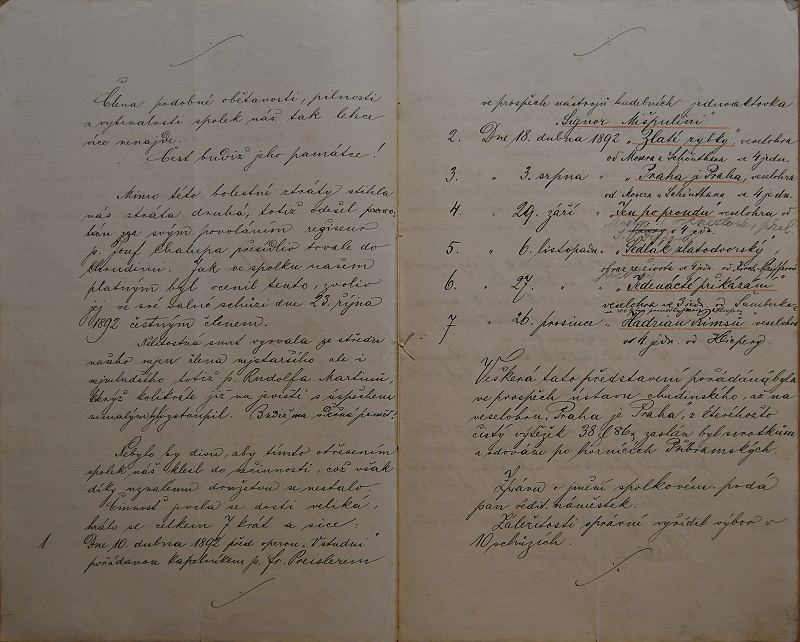 Člena podobné obětavosti, pilnosti
a vytrvalosti spolek náš tak lehce
více nenajde.
Čest budiž jeho památce!
Mimo této bolestné ztráty stihla
nás ztráta druhá, totiž odešel
tam za svým povoláním regiseur
p. Josef Chalupa přesídliv trvale do
Chrudimi. Jak ve spolku našem
platným byl ocenil tento, zvoliv
jej ve své valné schůzi dne 23. října
1892 čestným členem.
Nelítostná smrt vyrvala ze středu
našeho nejen člena nejstaršího ale i
nejmladšího totiž p. Rudolfa Martinů,
jenž kolikráte již na jevišti s úspěchem
nemalým vystoupil. Budiž mu věčná paměť!
Nebylo by divu, aby tímto otřesením
spolek náš klesl do nečinnosti, což však
díky uznalému družstvu se nestalo.
Činnost jevila se dosti veliká,
hrálo se celkem 7 krát a sice:
1. Dne 10. dubna 1892 před operou „V studni"
pořádanou kapelníkem p. Fr. Preislerem
ve prospěch nástrojů hudebních jednoaktovka
„Signor Mišpulini"
2. Dne 18. dubna 1892 „Zlaté rybky", veselohra
od Mosera a Schönthana ve 4 jedn.
3. " 3. srpna " „Praha je Praha", veselohra
od Mosera a Schönthana ve 4 jedn.
4. " 29. září " „Jen po proudu" veselohra od
4 jedn.
5. " 6. listopadu " „Sedlák zlatodvorský",
obraz ze života ve 4 jedn. od
6. " 27. " " „Jedenácté přikázání"
veselohra ve 3 jedn. od Šamberka
7 " 26. prosince " „Hadrian z Římsů" veselohra
ve 4 jedn. od Klicpery.
Veškerá tato představení pořádána byla
ve prospěch ústavu chudinského, až na
veselohru „Praha je Praha", z kteréhožto
čistý výtěžek 38 f 86 zaslán byl sirotkům
a vdovám po hornících Příbramských.
Zprávu o jmění spolkovém podá
pan ředit. náměstek.
Záležitosti správní vyřídil výbor v
10 schůzích.